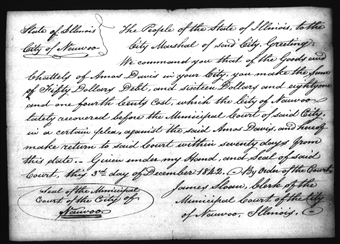 State of Illinois
City of Nauvoo
The People of the State of Illinois, to the
City Marshal of said City, Greeting.
We command you that of the Goods and
Chattels of Amos Davis in your City, you make the Sum
of Fifty Dollars Debt, and sixteen Dollars and eighty one
and one fourth Cents Cost, which the City of Nauvoo
lately recovered before the Municipal Court of said City,
in a certain plea, against the said Amos Davis, and hereof
make return to said Court within seventy days from
this date. Given under my Hand, and Seal of said
Court, this 3rd day of December 1842. By Order of the Court.
Seal of the Municipal
Court of the City of
Nauvoo
James Sloan, Clerk of the
Municipal Court of the City
of Nauvoo, Illinois.